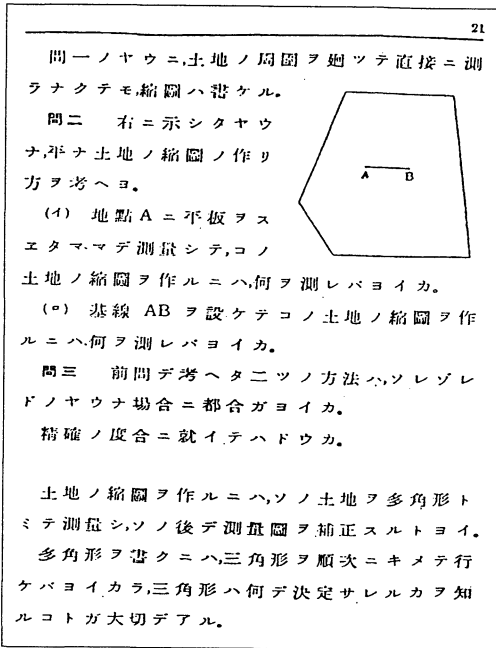 21
問一ノヤウニ,土地ノ周圍ヲ廻ツテ直接ニ測
ラナクテモ,縮圖ハ書ケル。
問二 右ニ示シタヤウ
ナ,平ナ土地ノ縮圖ノ作リ
方ヲ考ヘヨ。
(イ) 地點Aニ平板ヲス
ヱタママデ測量シテ,コノ
土地ノ縮圖ヲ作ルニハ,何ヲ測レバヨイカ。
(ロ) 基線 AB ヲ設ケテコノ土地ノ縮圖ヲ作
ルニハ,何ヲ測レバヨイカ。
問三 前問デ考ヘタ二ツノ方法ハ,ソレゾレ
ドノヤウナ場合ニ都合ガヨイカ。
精確ノ度合ニ就イテハドウカ。
土地ノ縮圖ヲ作ルニハ,ソノ土地ヲ多角形ト
ミテ測量シ,ソノ後デ測量圖ヲ補正スルトヨイ。
多角形ヲ書クニハ,三角形ヲ順次ニキメテ行
ケバヨイカラ,三角形ハ何デ決定サレルカヲ知
ルコトガ大切デアル。
A
B